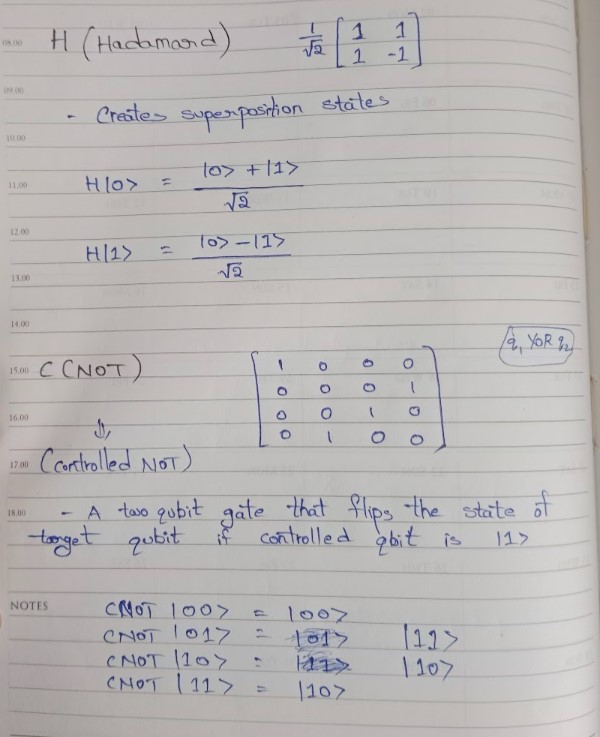 H (Hadamard) 1/√2 [ 1 1
1 -1 ]
08.00
09.00
- Creates superposition states
10.00
11.00 H|0> = |0> + |1> / √2
12.00
H|1> = |0> - |1> / √2
13.00
14.00
q₁ XOR q₂
15.00 C (NOT) [ 1 0 0 0
0 0 0 1
16.00 0 0 1 0
0 1 0 0 ]
⇓
17.00 (Controlled NOT)
18.00 - A two qubit gate that flips the state of
target qubit if controlled qbit is |1>
NOTES CNOT |00> = |00>
CNOT |01> = |01> |11>
CNOT |10> = |11> |10>
CNOT |11> = |10>